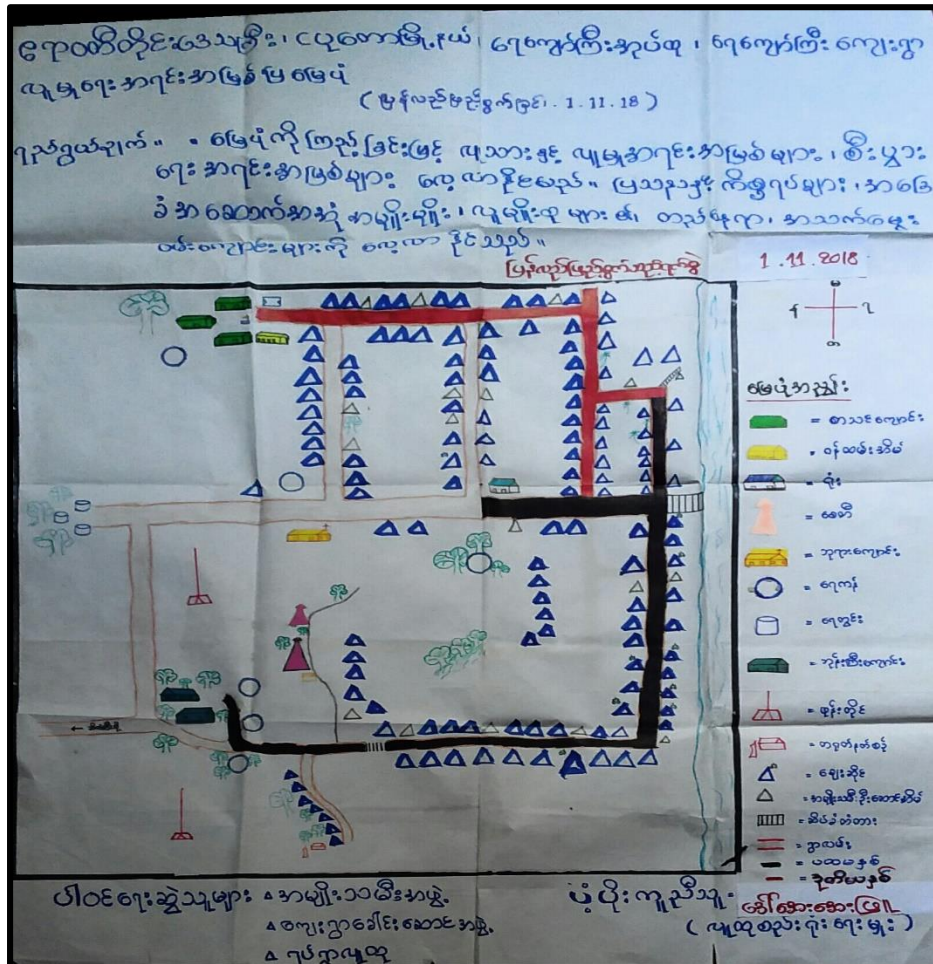 ဧရာဝတီတိုင်းဒေသကြီး၊ ငပုတောမြို့နယ်၊ ရေကျော်ကြီးအုပ်စု၊ ရေကျော်ကြီးကျေးရွာ
လူမှုရေးအရင်းအမြစ်ပြမြေပုံ
(ပြန်လည်ဖြည့်စွက်ခြင်း. 1.11.18)
ရည်ရွယ်ချက်။ ။ မြေပုံကိုကြည့်ခြင်းဖြင့် လူသားနှင့် လူမှုအရင်းအမြစ်များ၊ စီးပွား
ရေးအရင်းအမြစ်များ လေ့လာနိုင်မည်။ ပြဿနာနှင့် ကိစ္စရပ်များ၊ အခြေ
ခံအဆောက်အအုံအမျိုးမျိုး၊ လူမျိုးစုများ၏ တည်နေရာ၊ အသက်မွေး
ဝမ်းကျောင်းများကို လေ့လာနိုင်သည်။
1.11.2018
မ
န
တ
မြေပုံအညွှန်း
= စာသင်ကျောင်း
= ဝန်ထမ်းအိမ်
= ရုံး
= စေတီ
= ဘုရားကျောင်း
= ရေကန်
= ရေတွင်း
= ဘုန်းကြီးကျောင်း
= ဖုန်းတိုင်
= ဈေးဆိုင်
= အမျိုးသမီးဦးဆောင်အိမ်
= ဆိပ်ခံတံတား
= ရွာလမ်း
= ပထမနှစ်
= ဒုတိယနှစ်
ပါဝင်ရေးဆွဲသူများ △ အမျိုးသမီးအဖွဲ့
△ ကျေးရွာခေါင်းဆောင်အဖွဲ့
△ ရပ်ရွာလူထု
ပံ့ပိုးကူညီသူ- ဒေါ်အေးအေးဖြူ
(လူထုစည်းရုံးရေးမှူး)